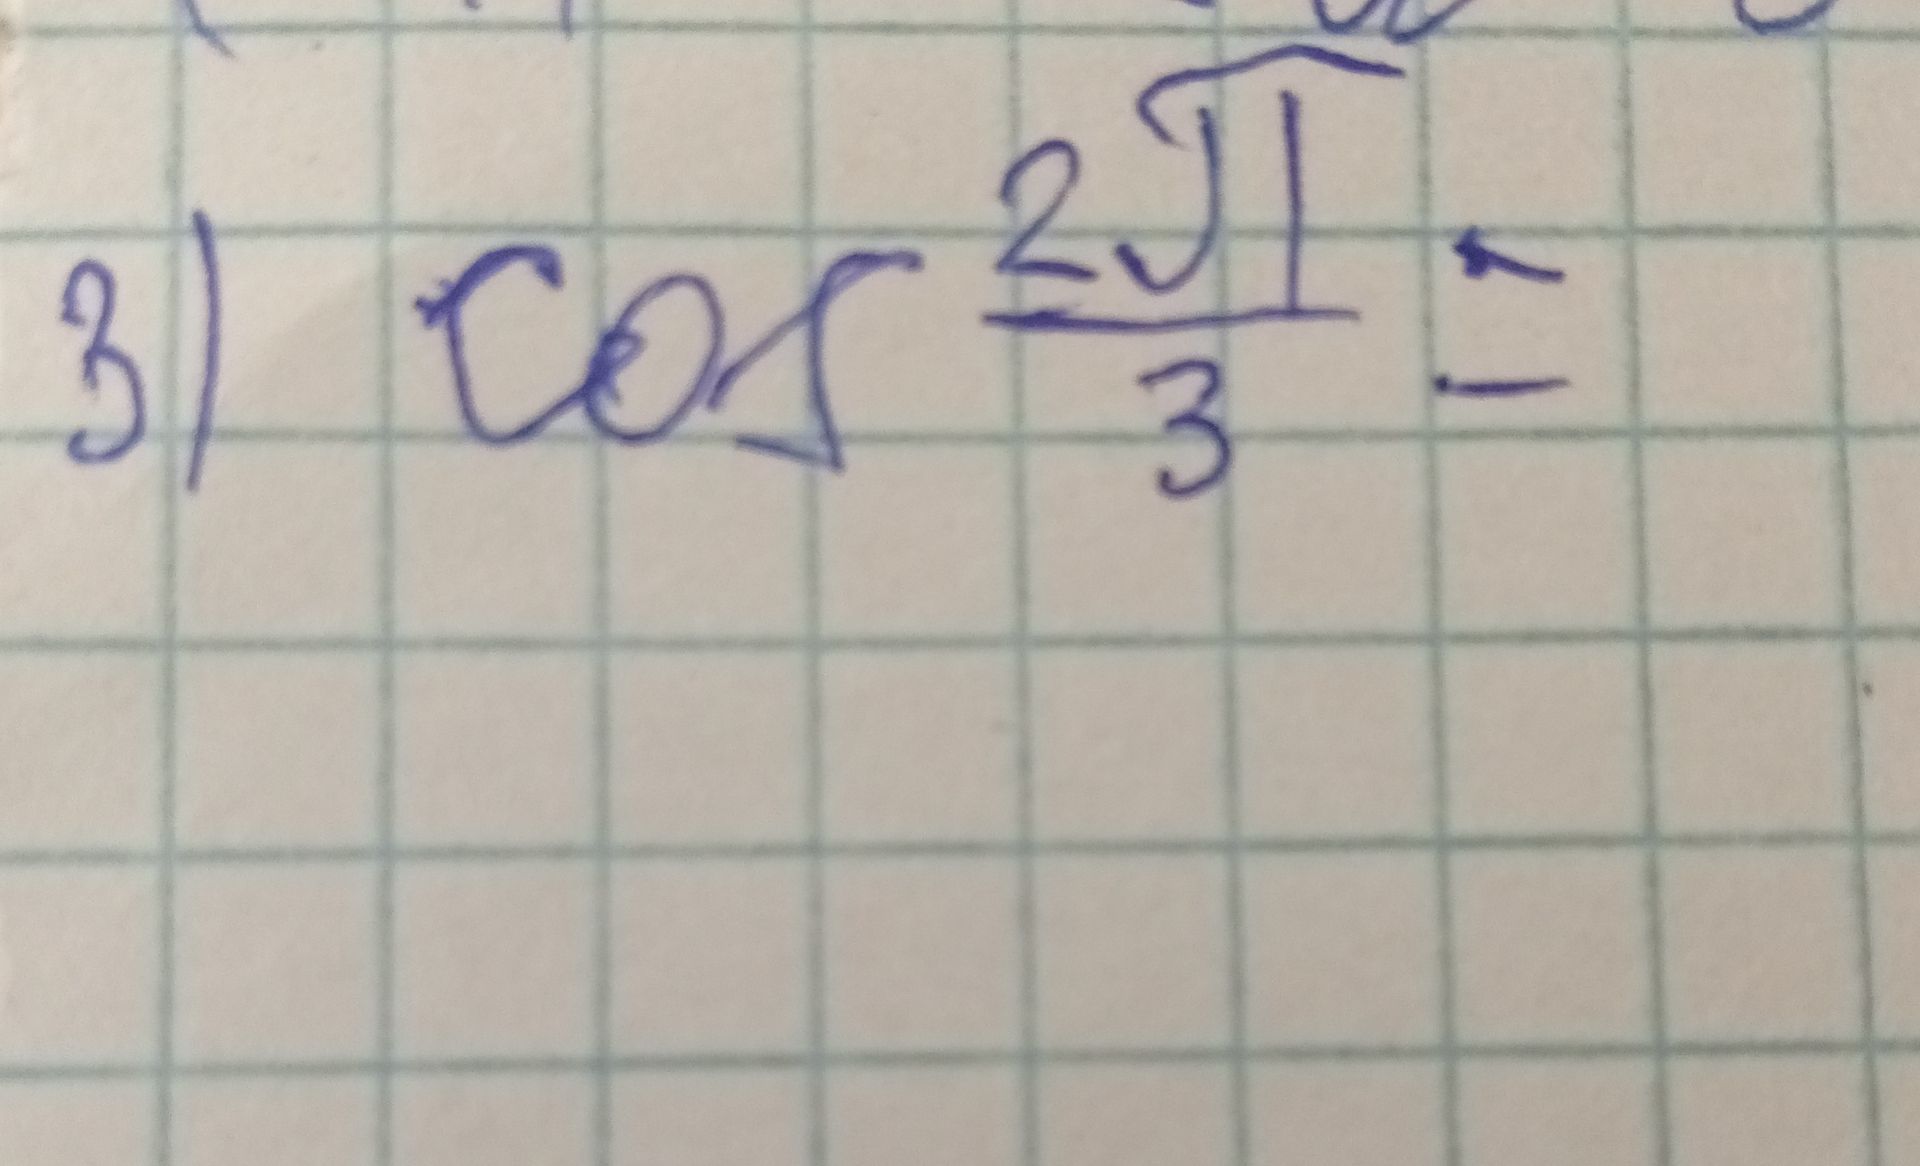 3) cos 2π/3 =